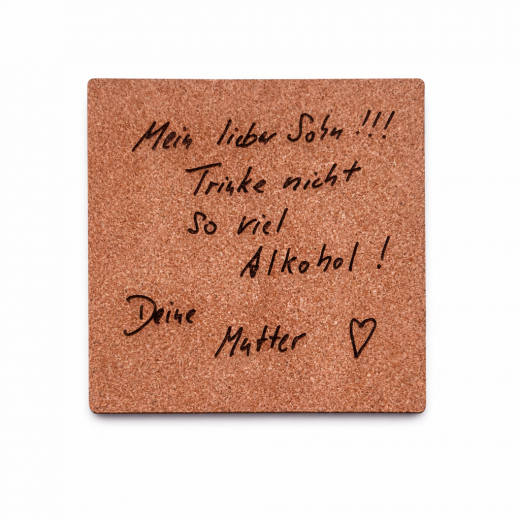 Mein lieber Sohn!!!
Trinke nicht
so viel
Alkohol!
Deine
Mutter ♡